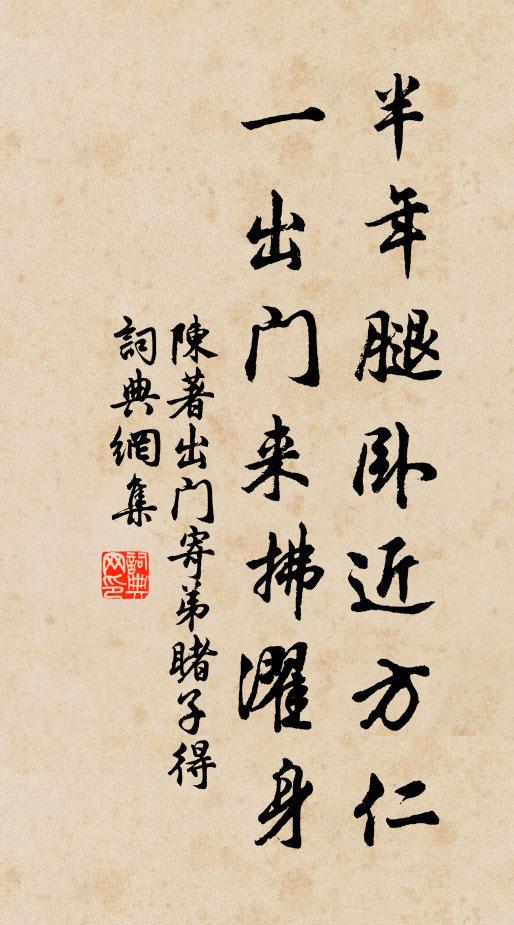 半年腿卧近方仁
一出门来拂濯身
陳著出门寄弟睹子得
詞典網集
詞典网印